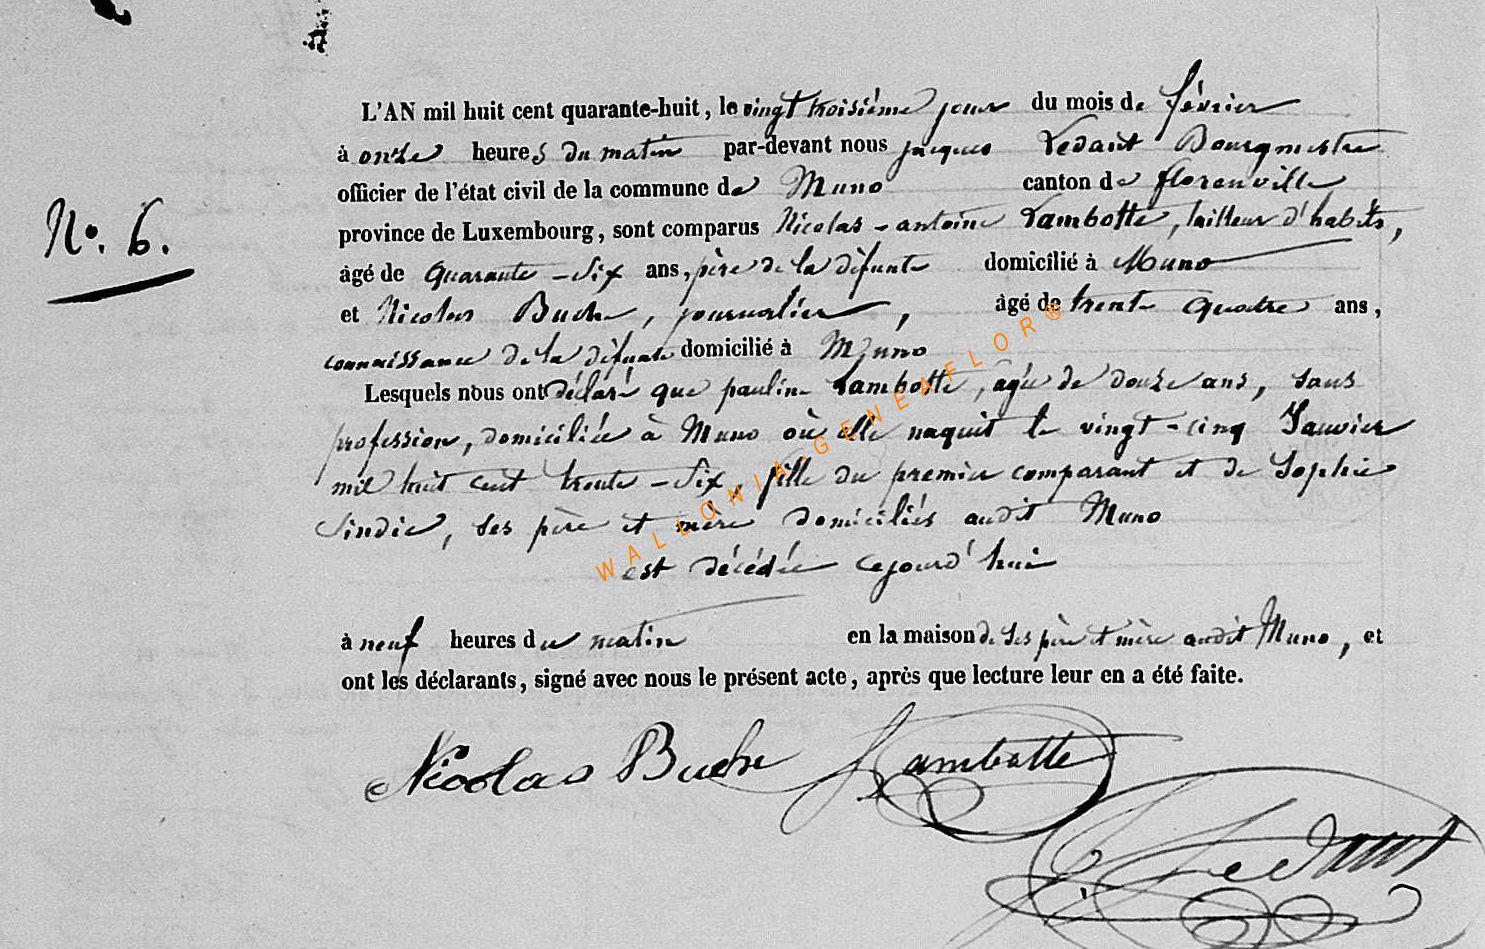 L'AN mil huit cent quarante-huit, le vingt troisième jour du mois de février
N.º 6.
à onze heures du matin par-devant nous jacques Ledant Bourgmestre
officier de l'état civil de la commune de Muno canton de florenville
province de Luxembourg, sont comparus Nicolas-antoine Lambotte, tailleur d'habits,
âgé de quarante-Six ans, père de la défunte domicilié à Muno
et Nicolas Buche, journalier, âgé de trente quatre ans,
connaissance de la défunte domicilié à Muno
Lesquels nous ont déclaré que pauline Lambotte, agée de douze ans, sans
profession, domiciliée à Muno où elle naquit le vingt-cinq Janvier
mil huit cent trente-Six, fille du premier comparant et de Sophie
Sindic, ses père et mère domiciliés audit Muno
est décédée cejourd'hui
à neuf heures du matin en la maison de ses père et mère audit Muno, et
ont les déclarants, signé avec nous le présent acte, après que lecture leur en a été faite.
Nicolas Buche Lambotte
Ledant
WALLONIA-GENEAFLOR®